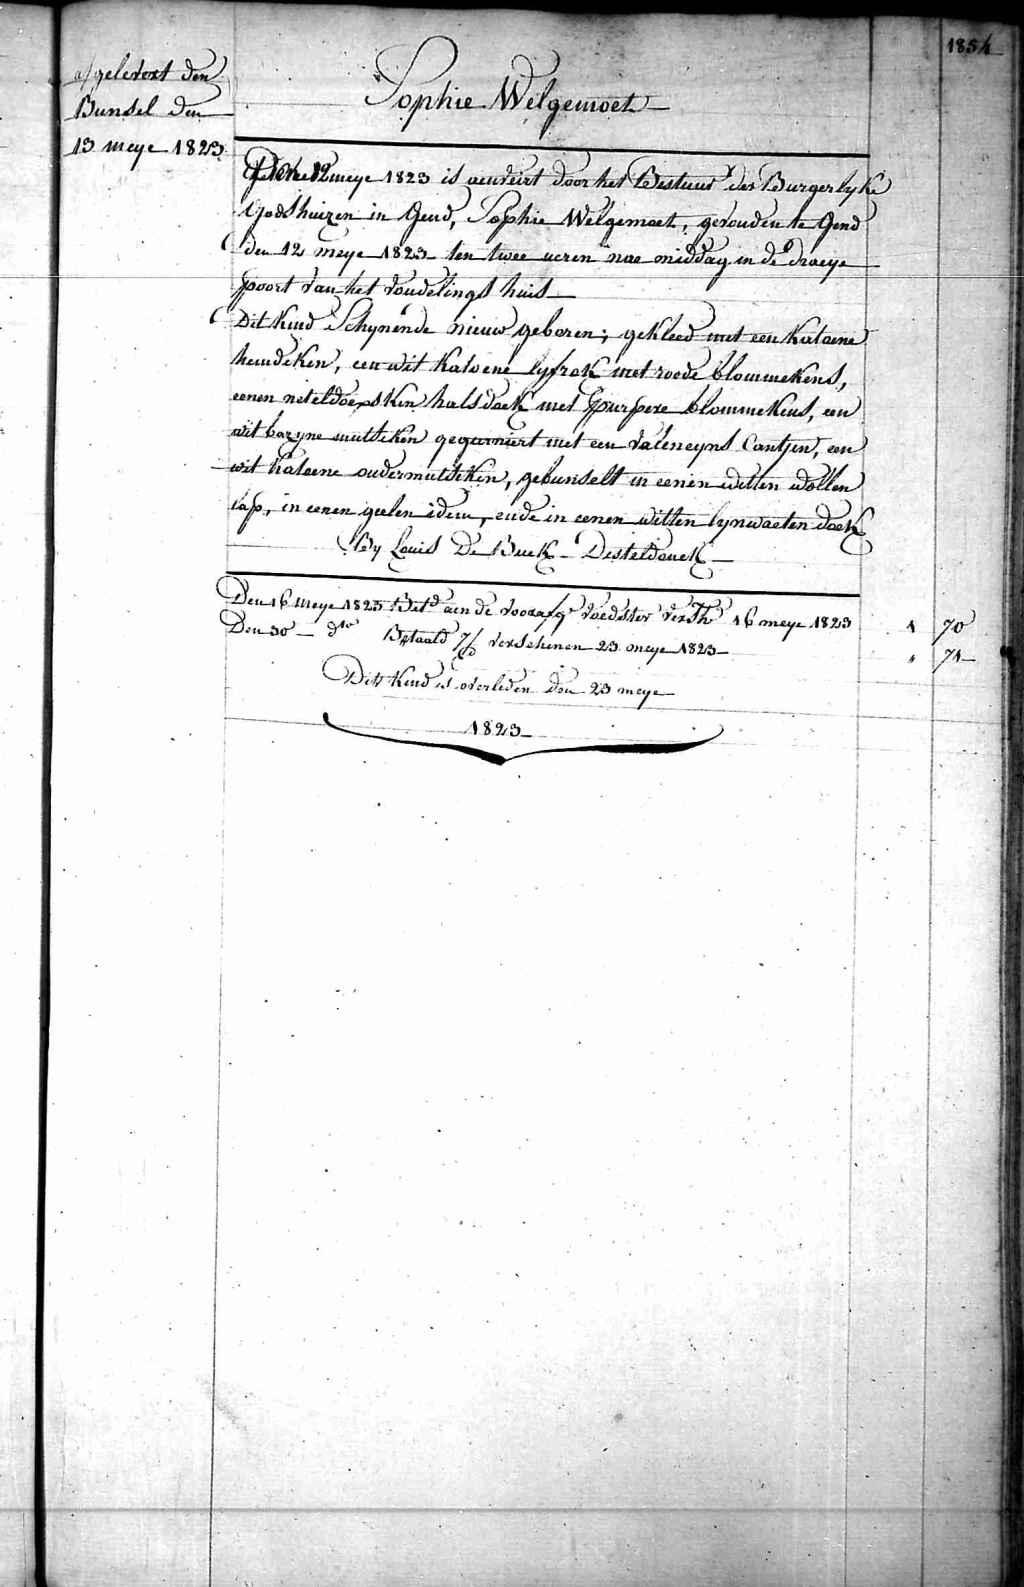 1854
afgelevert den
Bunsel den
13 meye 1823
Sophie Welgemoet
meye 1823 is aenveirt door het Bestuur der Burgerlyke
Godshuizen in Gend, Sophie Welgemoet, gevonden te Gend
den 12 meye 1823 ten twee ueren nae middag in de draeye
poort van het vondelings huis
Dit kind Schynende nieuw geboren; gekleed met een katoene
hemdeken, een wit katoene lyfrok met roode blommekens,
eenen neteldoekskin halsdoek met purpere blommekens, een
wit bazyne mutsken gegarniert met een valencyns Cantjen, een
wit katoene ondermutsken, gebunselt in eenen witten wollen
lap, in eenen geelen idem, ende in eenen witten lynwaeten doek
By Louis De Buck - Desteldonck
Den 16 Meye 1823 Betd aen de voorafge voedster versch. 16 meye 1823 1 70
Den 30 - dto Betaald verschenen 23 meye 1823 " 71
Dit kind is overleden den 23 meye
1823